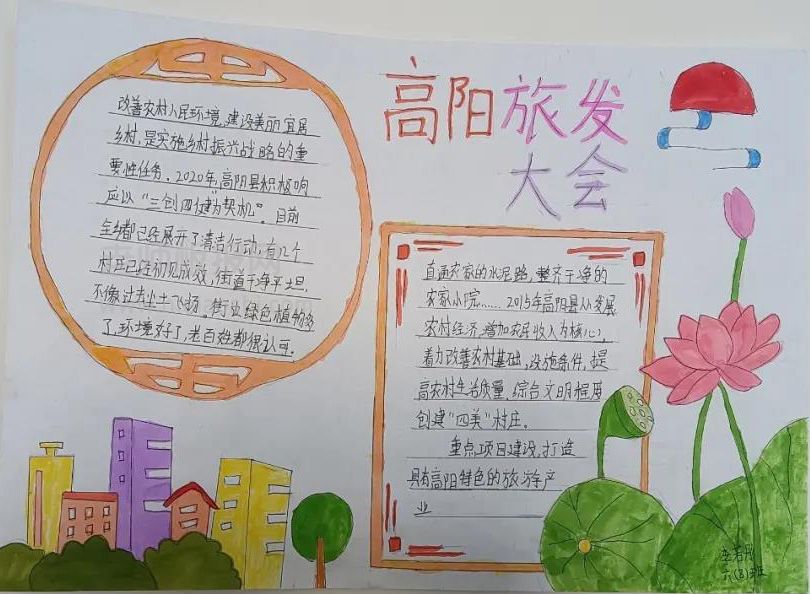 高阳旅发
大会
改善农村人民环境,建设美丽宜居
乡村,是实施乡村振兴战略的重
要性任务。2020年,高阳县积极响
应以“三创四建”为契机”。目前
全县都已经展开了清洁行动,有几个
村庄已经初见成效,街道干净平坦,
不像过去尘土飞扬。街边绿色植物多
了,环境好了,老百姓都很认可。
直通农家的水泥路,整齐干净的
农家小院……2015年高阳县以发展
农村经济,增加农民收入为核心,
着力改善农村基础,设施条件,提
高农村生活质量,综合文明程度
创建“四美”村庄。
重点项目建设,打造
具有高阳特色的旅游产
业
六(8)班